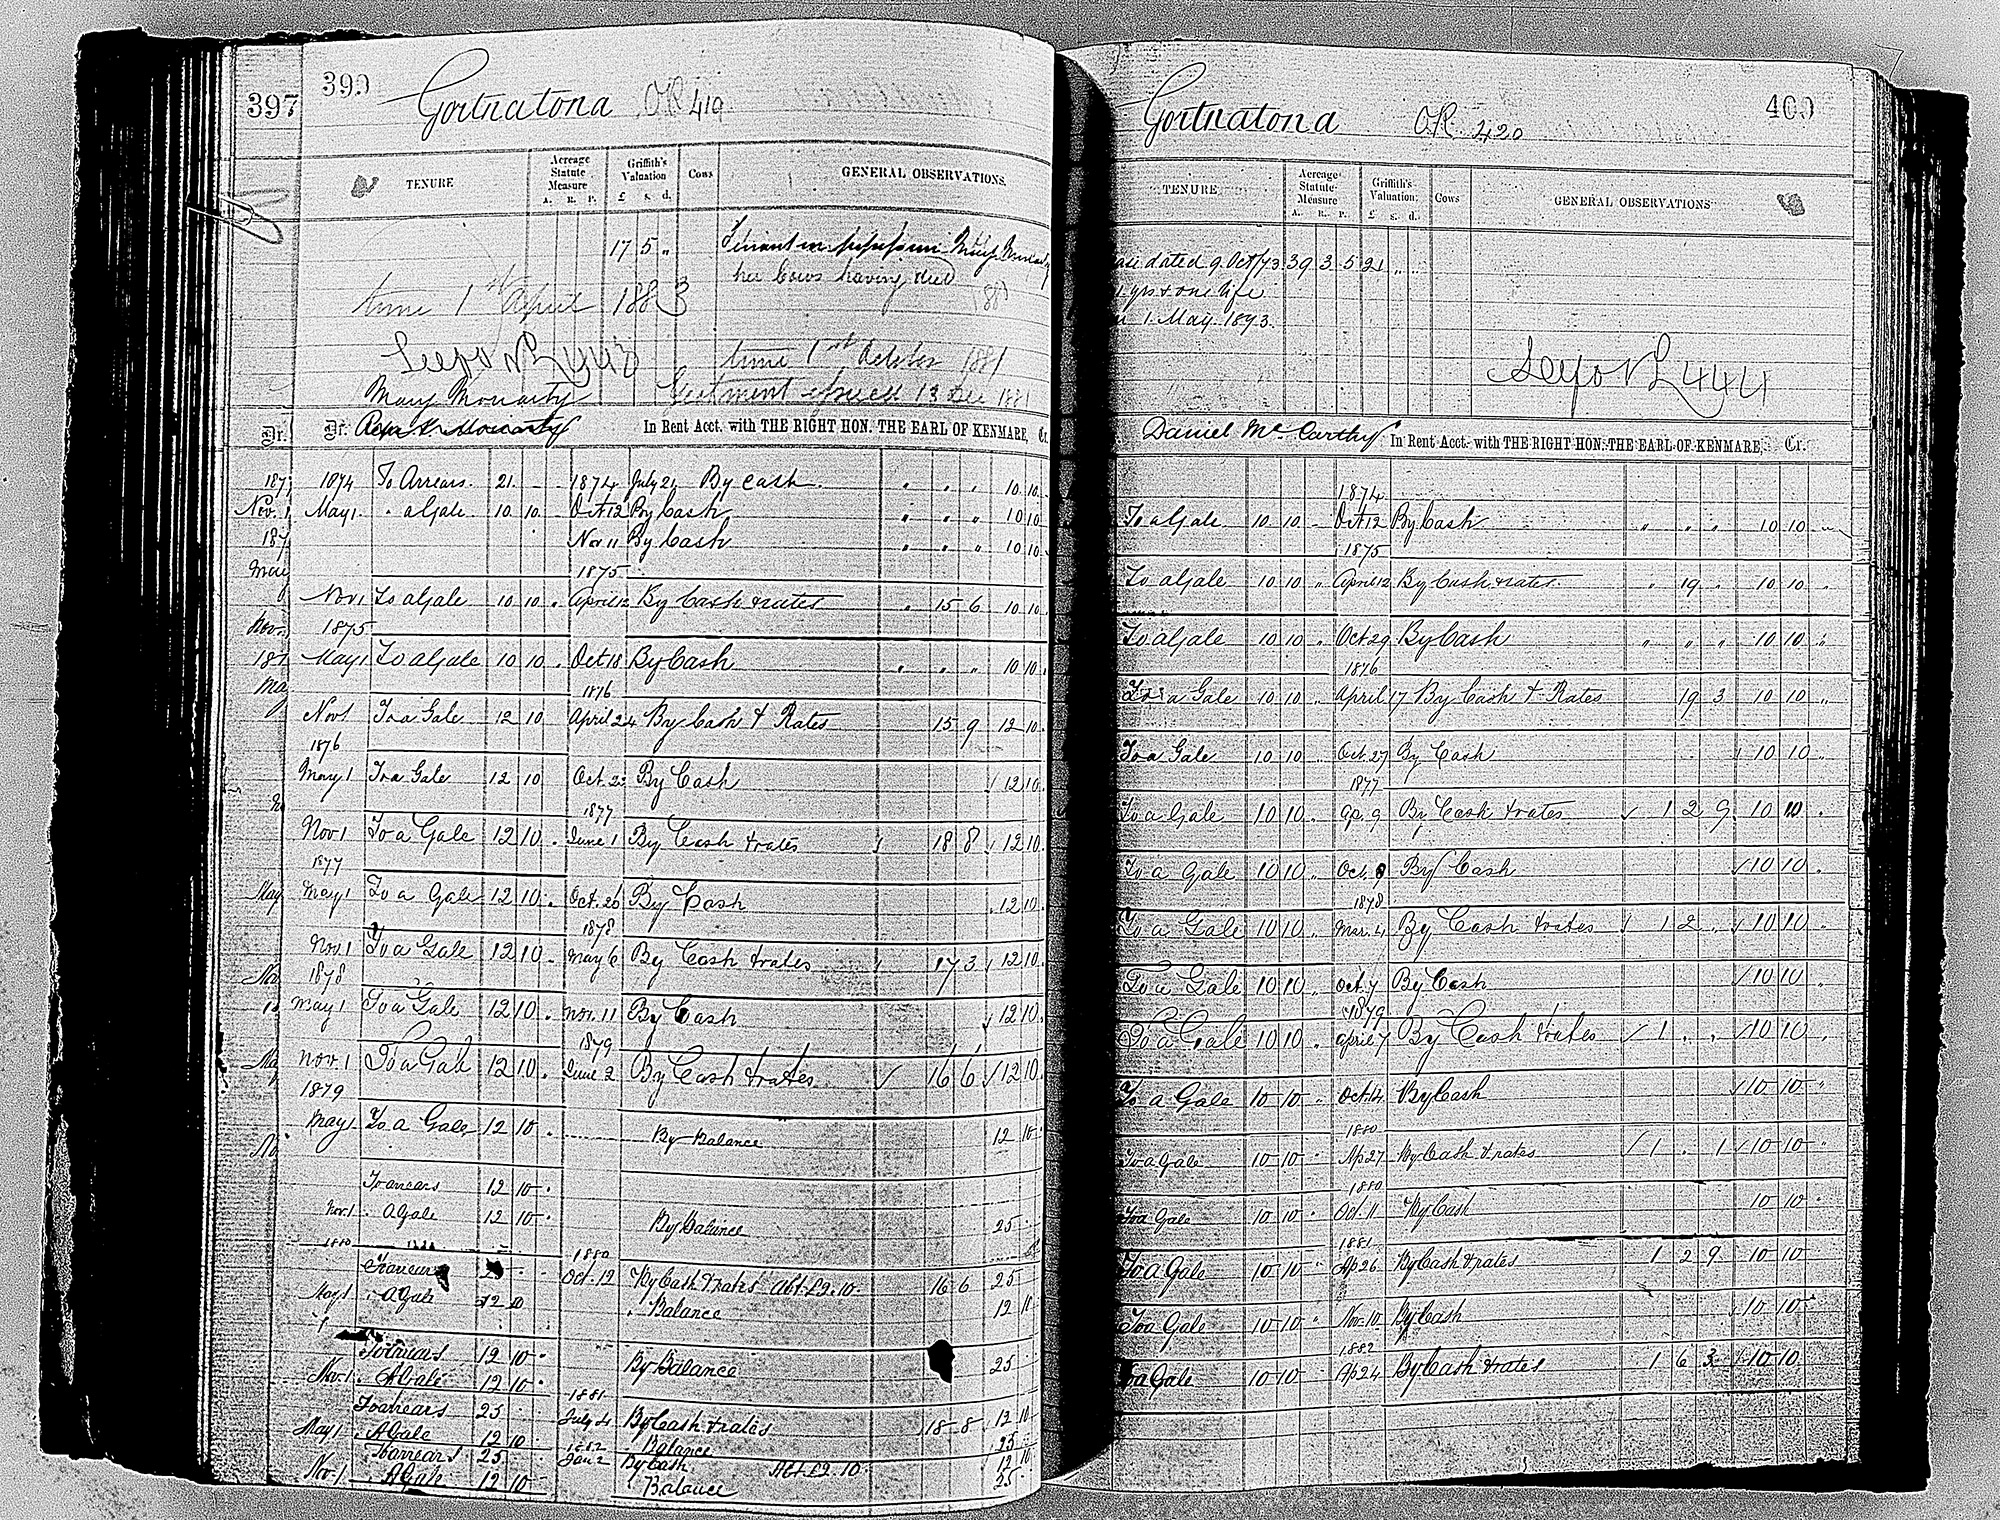 397
399
Gortnatona OR 419
TENURE
Acreage Statute Measure
A. R. P.
Griffith's Valuation
£ s. d.
Cows
GENERAL OBSERVATIONS.
17 5 "
Tenant in
her Cows having died
time 1st April 1883
1881
time 1st October 1881
Ejectment 13 Dec 1881
Mary Moriarty
Dr.
Dr. Moriarty In Rent Acct. with THE RIGHT HON. THE EARL OF KENMARE, Cr.
1874 To Arrears. 21 - - 1874 July 21 By Cash " " " 10 10
Nov. 1 May 1 " a Gale 10 10 Oct 12 By Cash " " " 10 10
Nov 11 By Cash " " " 10 10
May
1875
Nov 1 To a Gale 10 10 " April 12 By Cash & rates " 15 6 10 10
Nov. 1875
May 1 To a Gale 10 10 " Oct 18 By Cash " " " 10 10
1876
Nov 1 To a Gale 12 10 April 24 By Cash & Rates 15 9 12 10
1876
May 1 To a Gale 12 10 Oct. By Cash 12 10
1877
Nov 1 To a Gale 12 10 . June 1 By Cash & rates 18 8 12 10
1877
May May 1 To a Gale 12 10 . Oct. 26 By Cash 12 10
1878
Nov. 1 To a Gale 12 10 . May 6 By Cash & rates 17 3 12 10
1878
May 1 To a Gale 12 10 . Nov. 11 By Cash 12 10
1879
Nov. 1 To a Gale 12 10 . June 2 By Cash & rates 16 6 12 10
1879
May 1 To a Gale 12 10 . By Balance 12 10
To arrears 12 10
Nov. 1 " a Gale 12 10 By Balance 25
1880 1880
To arrears 25 Oct. 12 By Cash & rates Abt. £2.10. 16 6 25
May 1 " a Gale 12 10 " Balance 12 10
To arrears 12 10
Nov. 1 " A Gale 12 10 By Balance 25
1881
To arrears 25 July 4 By Cash & rates 18 8 12 10
May 1 " A Gale 12 10 " Balance 25
1882
To arrears 25 Jan 2 By Cash Abt. £2.10 12 10
Nov. 1 " A Gale 12 10 " Balance 25
Gortnatona OR. 420
400
TENURE
Acreage Statute Measure
A. R. P.
Griffith's Valuation.
£ s. d.
Cows
GENERAL OBSERVATIONS
dated 9 Oct/73 39 3 5 21 " "
yrs & one life
1 May 1873.
See fo NL 444
Daniel Mc Carthy In Rent Acct. with THE RIGHT HON. THE EARL OF KENMARE, Cr.
1874
To a Gale 10 10 - Oct 12 By Cash " " " 10 10
1875
To a Gale 10 10 " April 12 By Cash & rates " 19 " 10 10 "
To a Gale 10 10 " Oct 29 By Cash " " " 10 10 "
1876
To a Gale 10 10 " April 17 By Cash & Rates 19 3 10 10 "
To a Gale 10 10 " Oct. 27 By Cash 10 10
1877
To a Gale 10 10 " Ap. 9 By Cash & rates 1 2 9 10 10 .
To a Gale 10 10 " Oct. 9 By Cash 10 10 .
1878
To a Gale 10 10 " Mar. 4 By Cash & rates 1 2 . 10 10 .
To a Gale 10 10 . Oct. 7 By Cash 10 10 .
1879
To a Gale 10 10 " April 7 By Cash & rates 1 . . 10 10 .
To a Gale 10 10 " Oct 14 By Cash 10 10 "
1880
To a Gale 10 10 " Ap 27 By Cash & rates 1 . 1 10 10 "
1880
To a Gale 10 10 " Oct. 11 By Cash 10 10 "
1881
To a Gale 10 10 " Ap 26 By Cash & rates 1 2 9 10 10
To a Gale 10 10 " Nov. 10 By Cash 10 10
1882
To a Gale 10 10 Ap 24 By Cash & rates 1 6 3 10 10